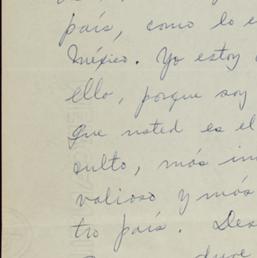 país, como lo e
México. Yo estoy
ello, porque soy
que usted es el
sulto, más in
valioso y más
tro país. Des